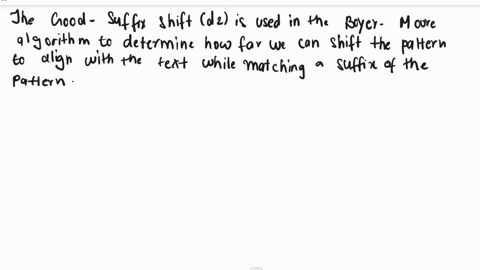 The Good- Suffix shift (d2) is used in the Boyer- Moore
algorithm to determine how far we can shift the pattern
to align with the text while matching a suffix of the
pattern.